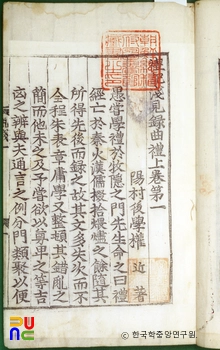 禮記淺見錄曲禮上卷第一
陽村後學權近著
愚嘗學禮於牧隱之門先生命之曰禮
經亡於秦火漢儒掇拾煨燼之餘隨其
所得先後而錄之故其文多失次而不
全程朱表章庸學又整頓其錯亂之
簡而他未之及予嘗欲以尊卑之等吉
凶之辨與夫通言之例分門類聚以便
© 한국학중앙연구원